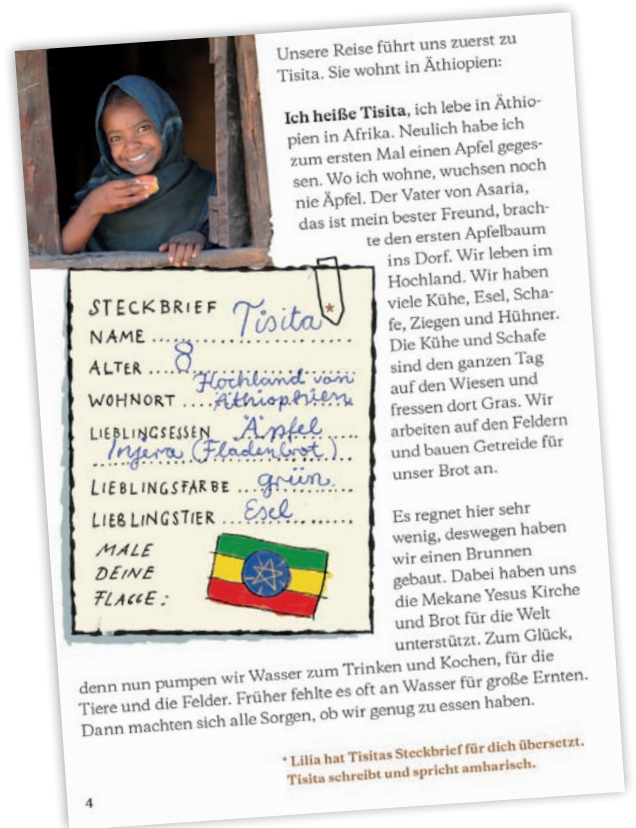 Unsere Reise führt uns zuerst zu
Tisita. Sie wohnt in Äthiopien:
Ich heiße Tisita, ich lebe in Äthio-
pien in Afrika. Neulich habe ich
zum ersten Mal einen Apfel geges-
sen. Wo ich wohne, wuchsen noch
nie Äpfel. Der Vater von Asaria,
das ist mein bester Freund, brach-
te den ersten Apfelbaum
ins Dorf. Wir leben im
Hochland. Wir haben
viele Kühe, Esel, Scha-
fe, Ziegen und Hühner.
Die Kühe und Schafe
sind den ganzen Tag
auf den Wiesen und
fressen dort Gras. Wir
arbeiten auf den Feldern
und bauen Getreide für
unser Brot an.
Es regnet hier sehr
wenig, deswegen haben
wir einen Brunnen
gebaut. Dabei haben uns
die Mekane Yesus Kirche
und Brot für die Welt
unterstützt. Zum Glück,
denn nun pumpen wir Wasser zum Trinken und Kochen, für die
Tiere und die Felder. Früher fehlte es oft an Wasser für große Ernten.
Dann machten sich alle Sorgen, ob wir genug zu essen haben.
STECKBRIEF
NAME Tisita *
ALTER 8
WOHNORT Hochland von
Äthiophien
LIEBLINGSESSEN Äpfel
Injera (Fladenbrot)
LIEBLINGSFARBE grün
LIEBLINGSTIER Esel
MALE
DEINE
FLAGGE:
* Lilia hat Tisitas Steckbrief für dich übersetzt.
Tisita schreibt und spricht amharisch.
4